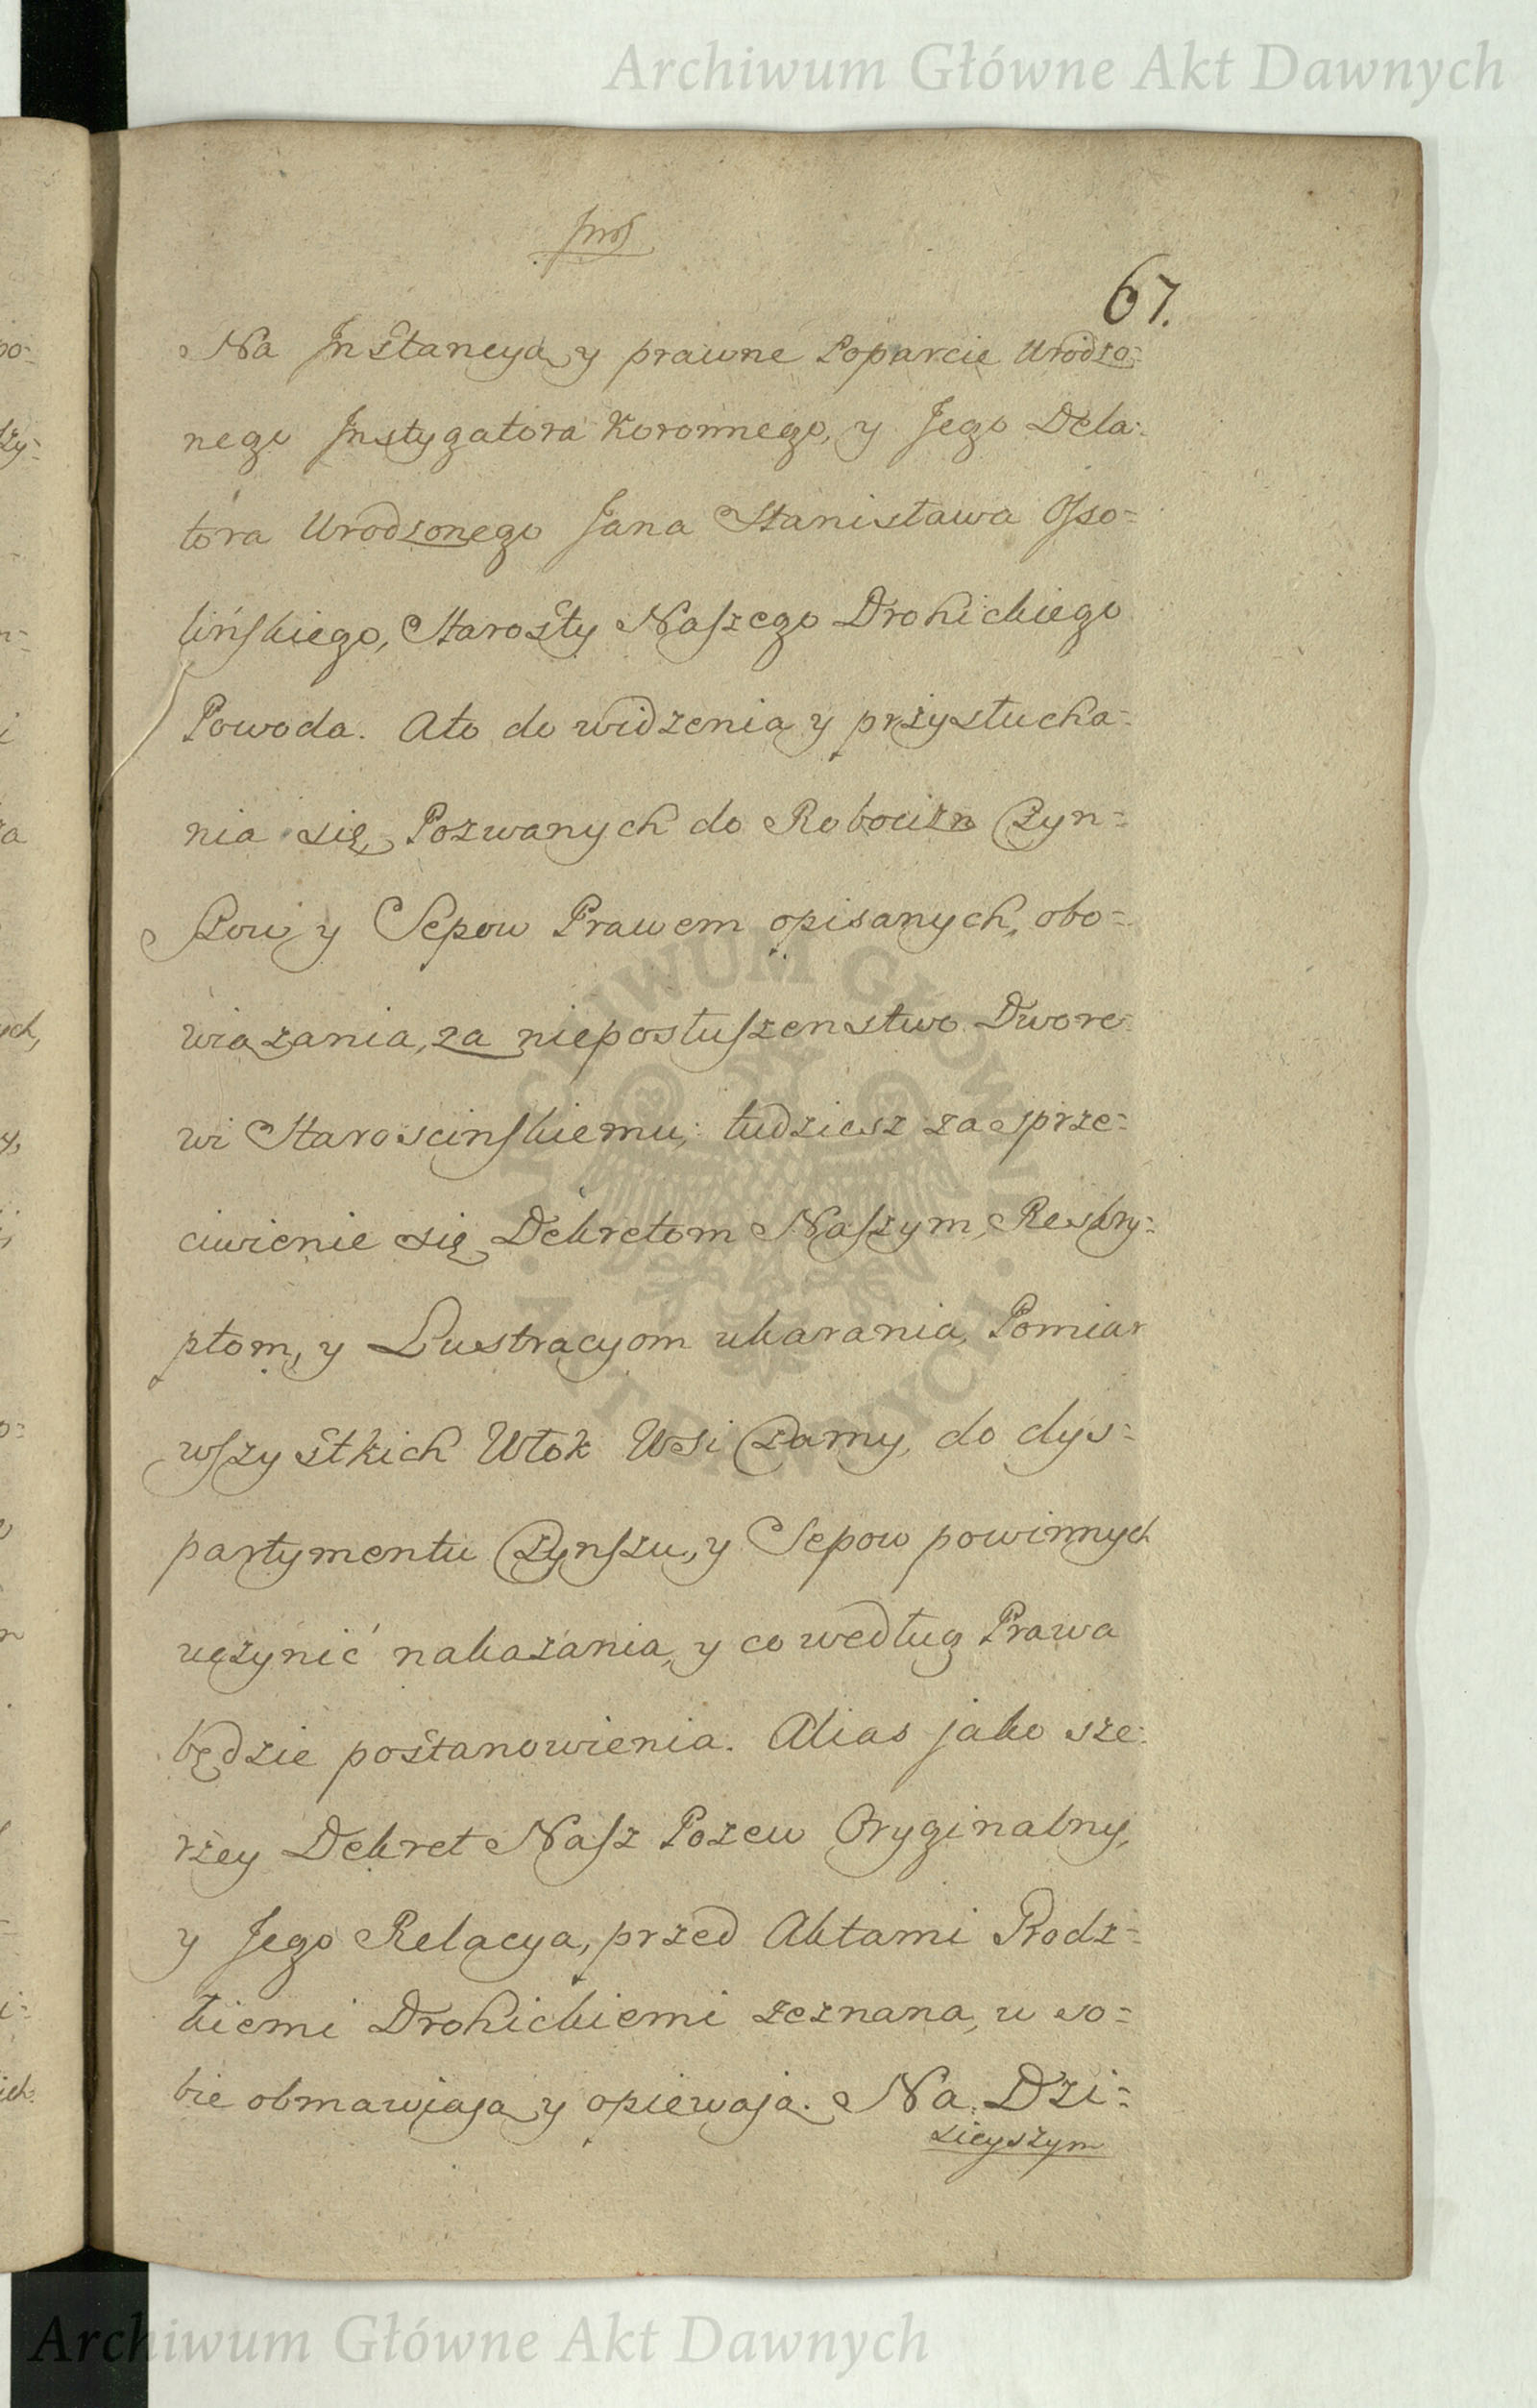 Archiwum Główne Akt Dawnych
67.
Na Instancyą y prawne Poparcie Urodzo=
nego Instygatora Koronnego, y Jego Dela=
tora Urodzonego Jana Stanisława Osso=
lińskiego, Starosty Naszego Drohickiego
Powoda. Ato do widzenia y przysłucha=
nia się, Pozwanych do Robocizn Czyn=
szow y Sepow Prawem opisanych, obo=
wiązania, za nieposłuszenstwo Dworo
wi Staroscinskiemu, tudziesz za sprze=
ciwienie się Dekretom Naszym, Reskry=
ptom, y Lustracyom ukarania, Pomiar
wszystkich Włok Wsi Czarny, do dys=
partymentu Czynszu, y Sepow powinnych
uczynić nakazania, y co według Prawa
będzie postanowienia. Alias jako sze=
rzey Dekret Nasz Pozew Oryginalny,
y Jego Relacya, przed Aktami Grodz=
kiemi Drohickiemi zeznana, w so=
bie obmawiają y opiewają. Na Dzi=
sieyszym
ARCHIWUM GŁÓWNE AKT DAWNYCH
Archiwum Główne Akt Dawnych